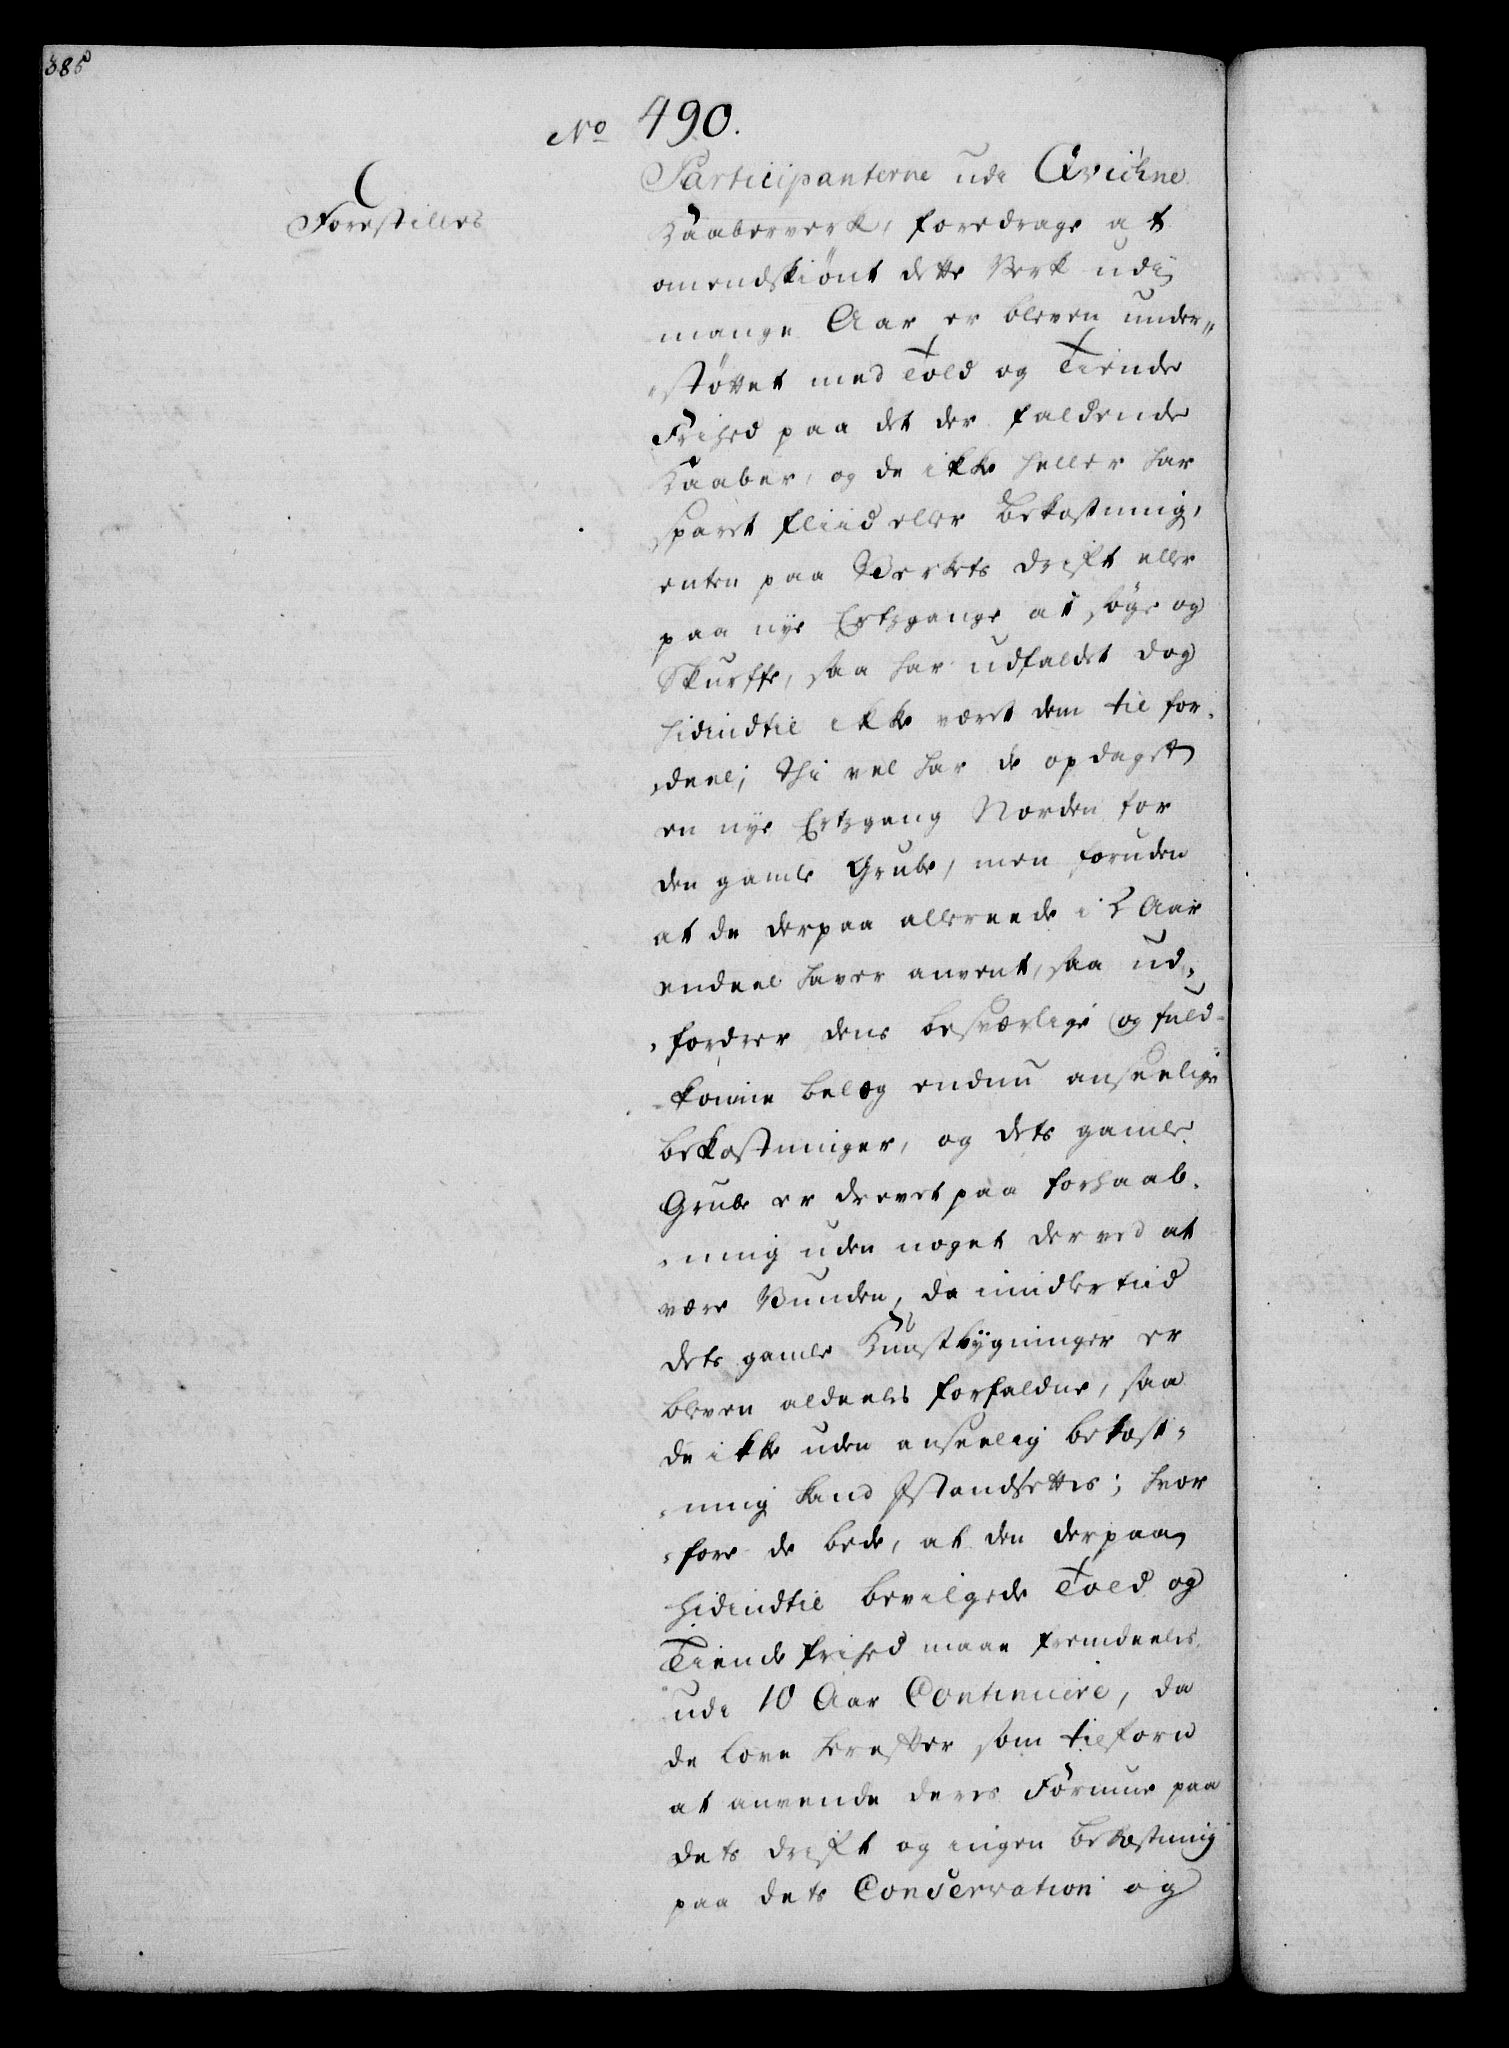 385
No 490.
Forestilles
Participanterne udi Qvickne
Kaaberverk, foredrage at
omendskiönt dette Verk udi
mange Aar er bleven under,,
,,støttet med Told og Tiende
Frihed paa det der faldende
Kaaber, og de ikke heller har
sparet fliid eller Bekostning,
enten paa Werkets drift eller
paa nye Ertzgange at søge og
Skurffe, saa har udfaldet dog
hidindtil ikke været dem til for,
,deel; Thi vel har de opdaget
en nye Ertzgang Norden for
den gamle Grube, men foruden
at de derpaa allereede i Aar
endeel haver anvent, saa ud,
,fordrer dens besværlige og fuld-
-komne belæg endnu anseelige
bekostninger, og dets gamle
Grube er drevet paa forhaab,
,ning uden noget derved at
være Vunden, da imidlertiid
dets gamle Kunstbygninger er
bleven aldeeles forfaldne, saa
de ikke uden anseelig bekost,
,ning kand Istandsettes; hvor
,fore de bede, at den derpaa
hidindtil bevilgede Told og
Tiende frihed maae fremdeeles
udi 10 Aar Continuere, da
de love herefter som tilforn
at anvende deres Formue paa
dets drift og ingen bekostning
paa dets Conservation og